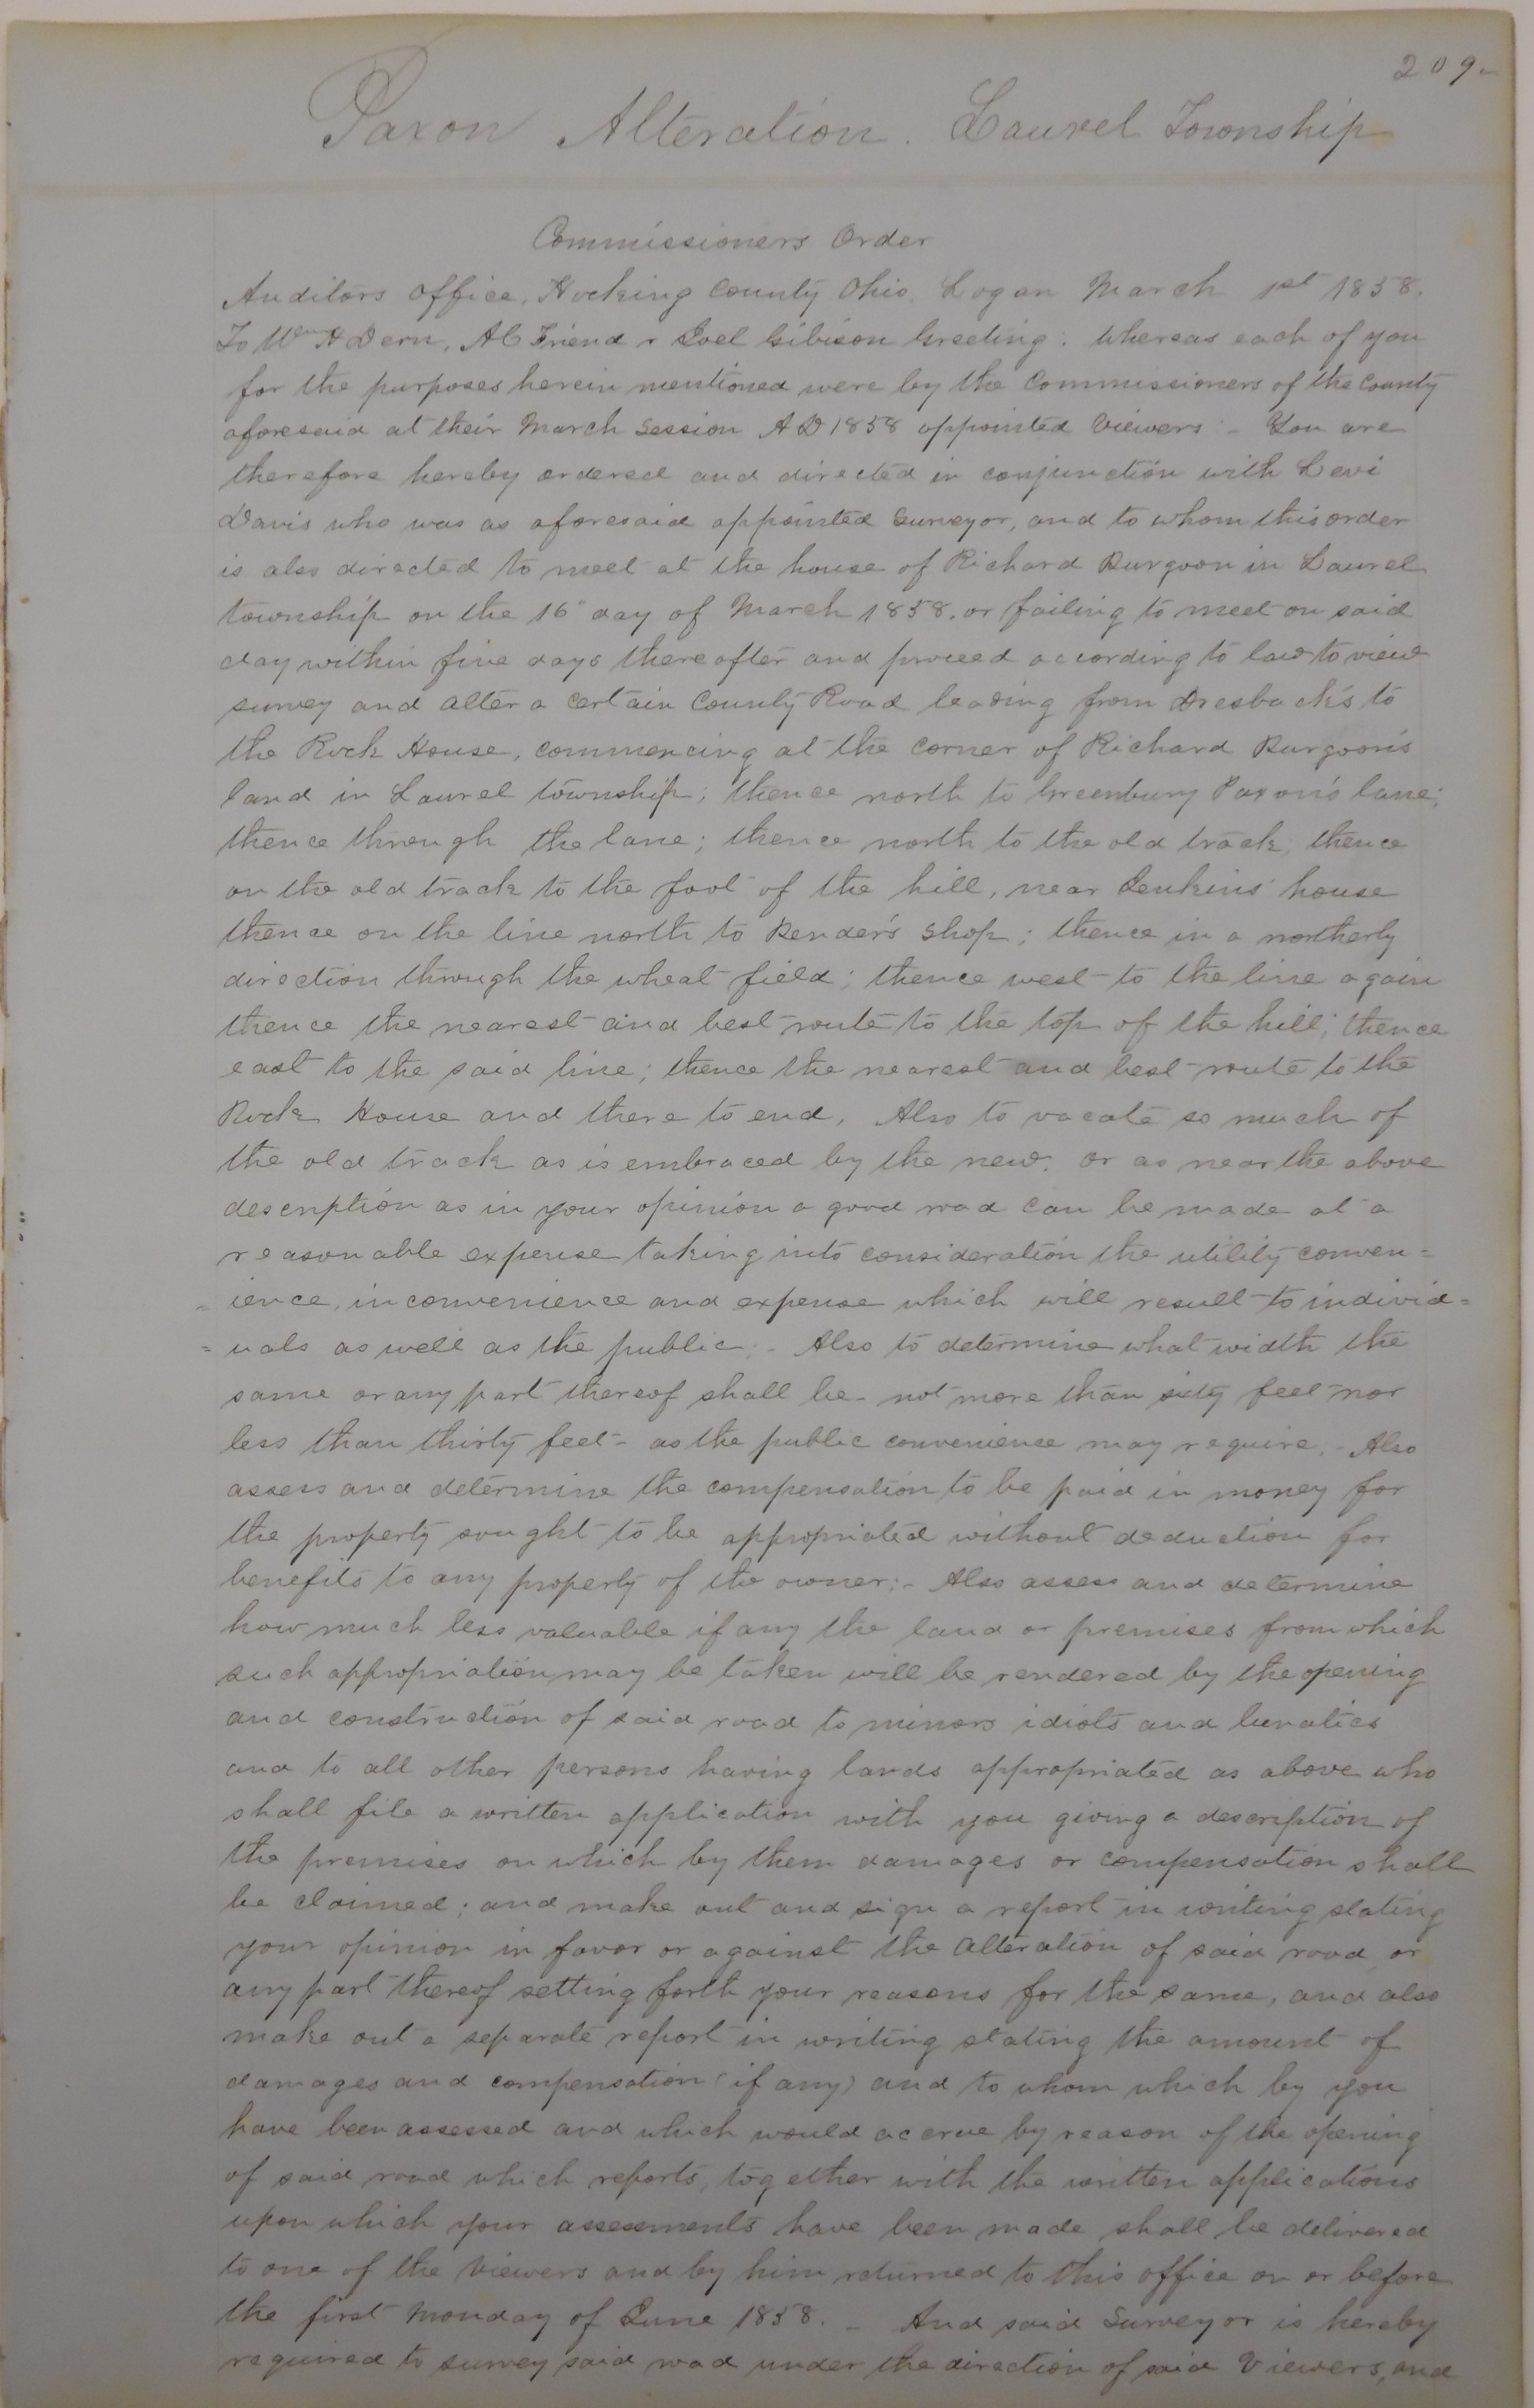 209-
Paxon Alteration. Laurel Township
Commissioners Order
Auditors office, Hocking County Ohio. Logan March 1st 1858.
To Wm H Dern, A C Friend & Joel Gibison Greeting: Whereas each of you
for the purposes herein mentioned were by the Commissioners of the County
aforesaid at their March Session A D 1858 appointed Viewers:- You are
therefore hereby ordered and directed in conjunction with Levi
Davis who was as aforesaid appointed Surveyor, and to whom this order
is also directed to meet at the house of Richard Burgoon in Laurel
township on the 16" day of March 1858. or failing to meet on said
day within five days thereafter and proceed according to law to view
survey and alter a certain County Road leading from Dresback's to
the Rock House, commencing at the corner of Richard Burgoon's
land in Laurel township; thence north to Greenbury Paxon's lane;
thence through the lane; thence north to the old track; thence
on the old track to the foot of the hill, near Jenkins' house
thence on the line north to Bender's shop; thence in a northerly
direction through the wheat field; thence west to the line again
thence the nearest and best route to the top of the hill; thence
east to the said line; thence the nearest and best route to the
Rock House and there to end. Also to vacate so much of
the old track as is embraced by the new. or as near the above
description as in your opinion a good road can be made at a
reasonable expense taking into consideration the utility conven=
=ience, inconvenience and expense which will result to individ=
=uals as well as the public:- Also to determine what width the
same or any part thereof shall be- not more than sixty feet nor
less than thirty feet- as the public convenience may require.- Also
assess and determine the compensation to be paid in money for
the property sought to be appropriated without deduction for
benefits to any property of the owner:- Also assess and determine
how much less valuable if any the land or premises from which
such appropriation may be taken will be rendered by the opening
and construction of said road to minors idiots and lunatics
and to all other persons having lands appropriated as above who
shall file a written application with you giving a description of
the premises on which by them damages or compensation shall
be claimed; and make out and sign a report in writing stating
your opinion in favor or against the alteration of said road or
any part thereof setting forth your reasons for the same, and also
make out a separate report in writing stating the amount of
damages and compensation (if any) and to whom which by you
have been assessed and which would accrue by reason of the opening
of said road which reports, together with the written applications
upon which your assessments have been made shall be delivered
to one of the Viewers and by him returned to this office on or before
the first Monday of June 1858. - And said Surveyor is hereby
required to survey said road under the direction of said Viewers, and